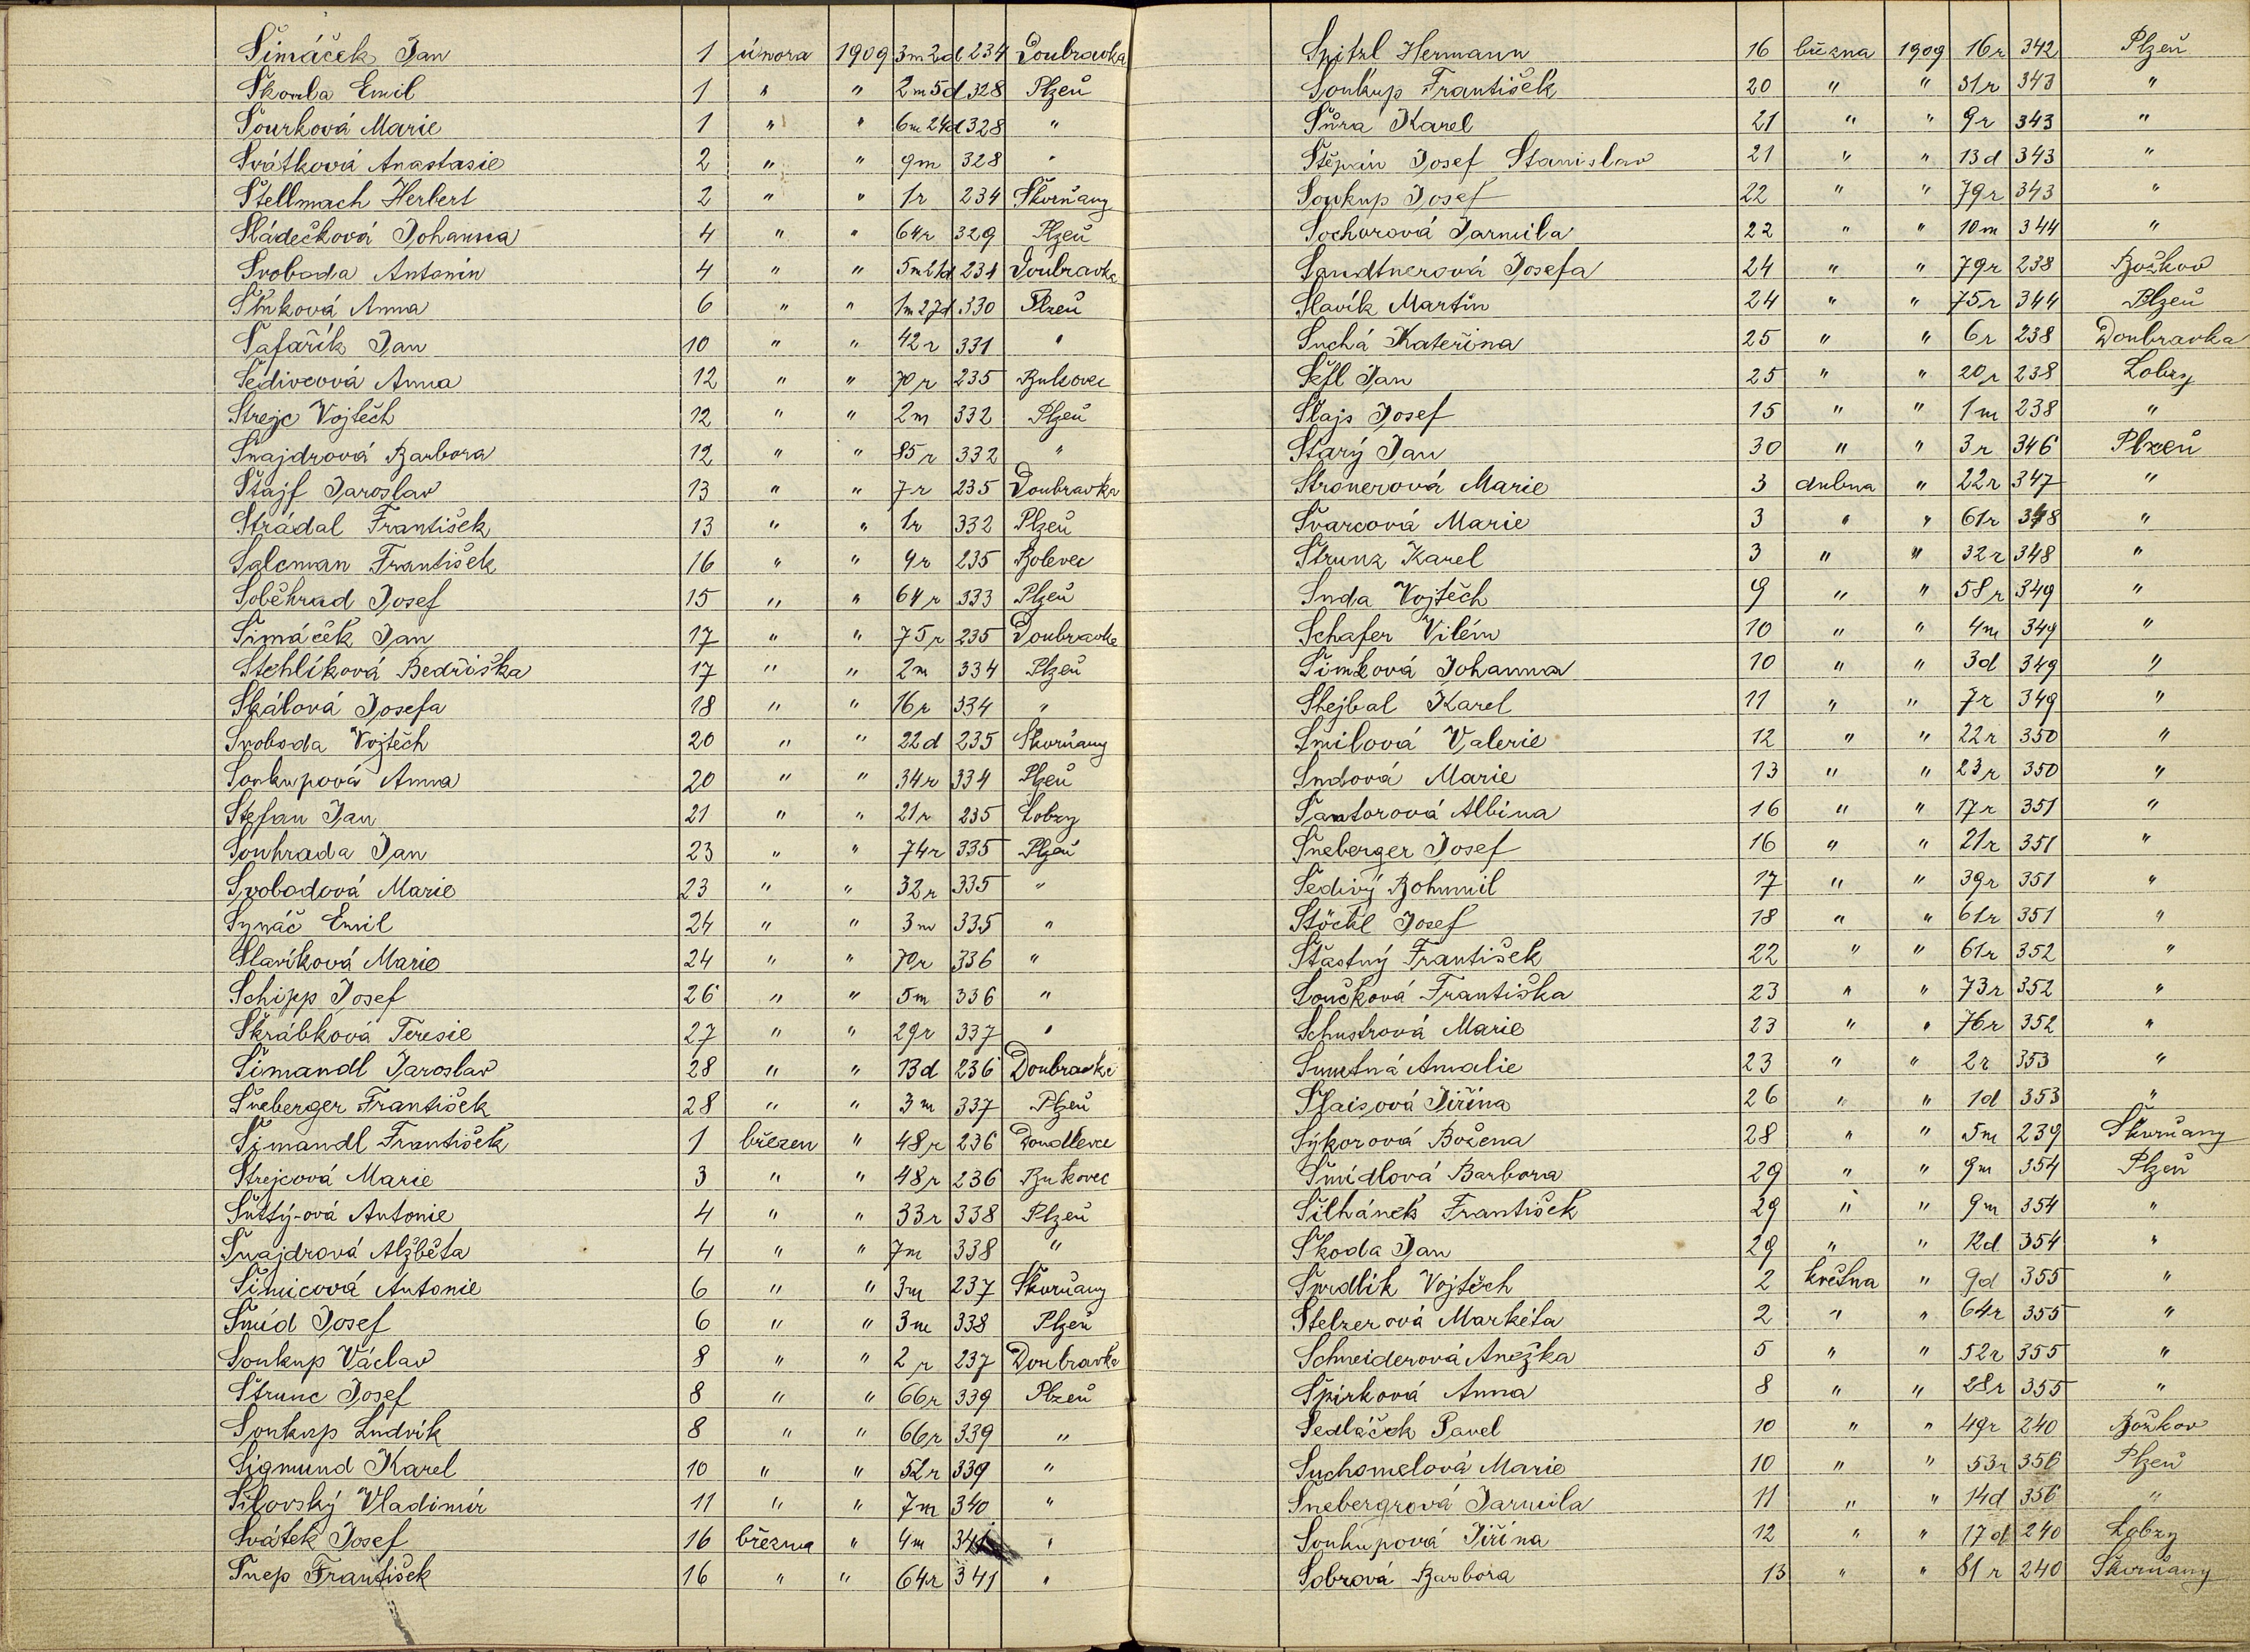 Šimáček Jan 1 února 1909 3m 2d 234 Doubravka
Škorla Emil 1 " " 2m 5d 328 Plzeň
Šourková Marie 1 " " 6m 24d 328 "
Svátková Anastasie 2 " " 9m 328 "
Stellmach Herbert 2 " " 1r 234 Skvrňany
Sládečková Johanna 4 " " 64r 329 Plzeň
Svoboda Antonín 4 " " 5m 21d 234 Doubravka
Anna 6 " " 1m 27d 330 Plzeň
Šafařík Jan 10 " " 42r 331 "
Šedivcová Anna 12 " " 70r 235 Bukovec
Strejc Vojtěch 12 " " 2m 332 Plzeň
Šnajdrová Barbora 12 " " 85r 332 "
Štajf Jaroslav 13 " " 7r 235 Doubravka
Strádal František 13 " " 1r 332 Plzeň
Salcman František 16 " " 4r 235 Bolevec
Soběhrad Josef 15 " " 64r 333 Plzeň
Šimáček Jan 17 " " 75r 235 Doubravka
Stehlíková Bedřiška 17 " " 2m 334 Plzeň
Skálová Josefa 18 " " 16r 334 "
Svoboda Vojtěch 20 " " 22d 235 Skvrňany
Soukupová Anna 20 " " 34r 334 Plzeň
Stefan Jan 21 " " 21r 235 Lobzy
Souhrada Jan 23 " " 74r 335 Plzeň
Svobodová Marie 23 " " 32r 335 "
Synáč Emil 24 " " 3m 335 "
Slavíková Marie 24 " " 70r 336 "
Schipp Josef 26 " " 5m 336 "
Škrábková Teresie 27 " " 29r 337 "
Šimandl Jaroslav 28 " " 13d 236 Doubravka
Šneberger František 28 " " 3m 337 Plzeň
Šimandl František 1 březen " 48r 236 Doudlevce
Strejcová Marie 3 " " 48r 236 Bukovec
Šuttý-ová Antonie 4 " " 33r 338 Plzeň
Šnajdrová Alžběta 4 " " 7m 338 "
Šimicová Antonie 6 " " 3m 237 Skvrňany
Šmíd Josef 6 " " 3m 338 Plzeň
Soukup Václav 8 " " 2r 237 Doubravka
Štrunc Josef 8 " " 66r 339 Plzeň
Soukup Ludvík 8 " " 66r 339 "
Sigmund Karel 10 " " 52r 339 "
Silovský Vladimír 11 " " 7m 340 "
Svátek Josef 16 března " 4m 341 "
Šnep František 16 " " 64r 341 "
Spitzl Hermann 16 března 1909 16r 342 Plzeň
Soukup František 20 " " 31r 343 "
Šůra Karel 21 " " 9r 343 "
Štěpán Josef Stanislav 21 " " 13d 343 "
Soukup Josef 22 " " 79r 343 "
Sochorová Jarmila 22 " " 10m 344 "
Sandtnerová Josefa 24 " " 79r 238 Božkov
Slavík Martin 24 " " 75r 344 Plzeň
Suchá Kateřina 25 " " 6r 238 Doubravka
Šefl Jan 25 " " 20r 238 Lobzy
Šlajs Josef 15 " " 1m 238 "
Starý Jan 30 " " 3r 346 Plzeň
Stronerová Marie 3 dubna " 22r 347 "
Švarcová Marie 3 " " 61r 348 "
Štrunz Karel 3 " " 32r 348 "
Suda Vojtěch 9 " " 58r 349 "
Schafer Vilém 10 " " 4m 349 "
Šimková Johanna 10 " " 3d 349 "
Stejbal Karel 11 " " 7r 349 "
Šmilová Valerie 12 " " 22r 350 "
Sudová Marie 13 " " 23r 350 "
Šantorová Albina 16 " " 17r 351 "
Šneberger Josef 16 " " 21r 351 "
Šedivý Bohumil 17 " " 39r 351 "
Stöckl Josef 18 " " 61r 351 "
Šťastný František 22 " " 61r 352 "
Součková Františka 23 " " 73r 352 "
Schustrová Marie 23 " " 76r 352 "
Smutná Amalie 23 " " 2r 353 "
Šlaisová Jiřina 26 " " 1d 353 "
Sýkorová Božena 28 " " 5m 239 Skvrňany
Šmídlová Barbora 29 " " 9m 354 Plzeň
Šilhánek František 29 " " 9m 354 "
Škoda Jan 29 " " 12d 354 "
Vojtěch 2 května " 9d 355 "
Stelzerová Markéta 2 " " 64r 355 "
Schneiderová Anežka 5 " " 52r 355 "
Špirková Anna 8 " " 28r 355 "
Sedláček Pavel 10 " " 49r 240 Božkov
Suchomelová Marie 10 " " 53r 356 Plzeň
Šnebergrová Jarmila 11 " " 14d 356 "
Soukupová Jiřina 12 " " 17d 240 Lobzy
Sobrová Barbora 13 " " 81r 240 Skvrňany